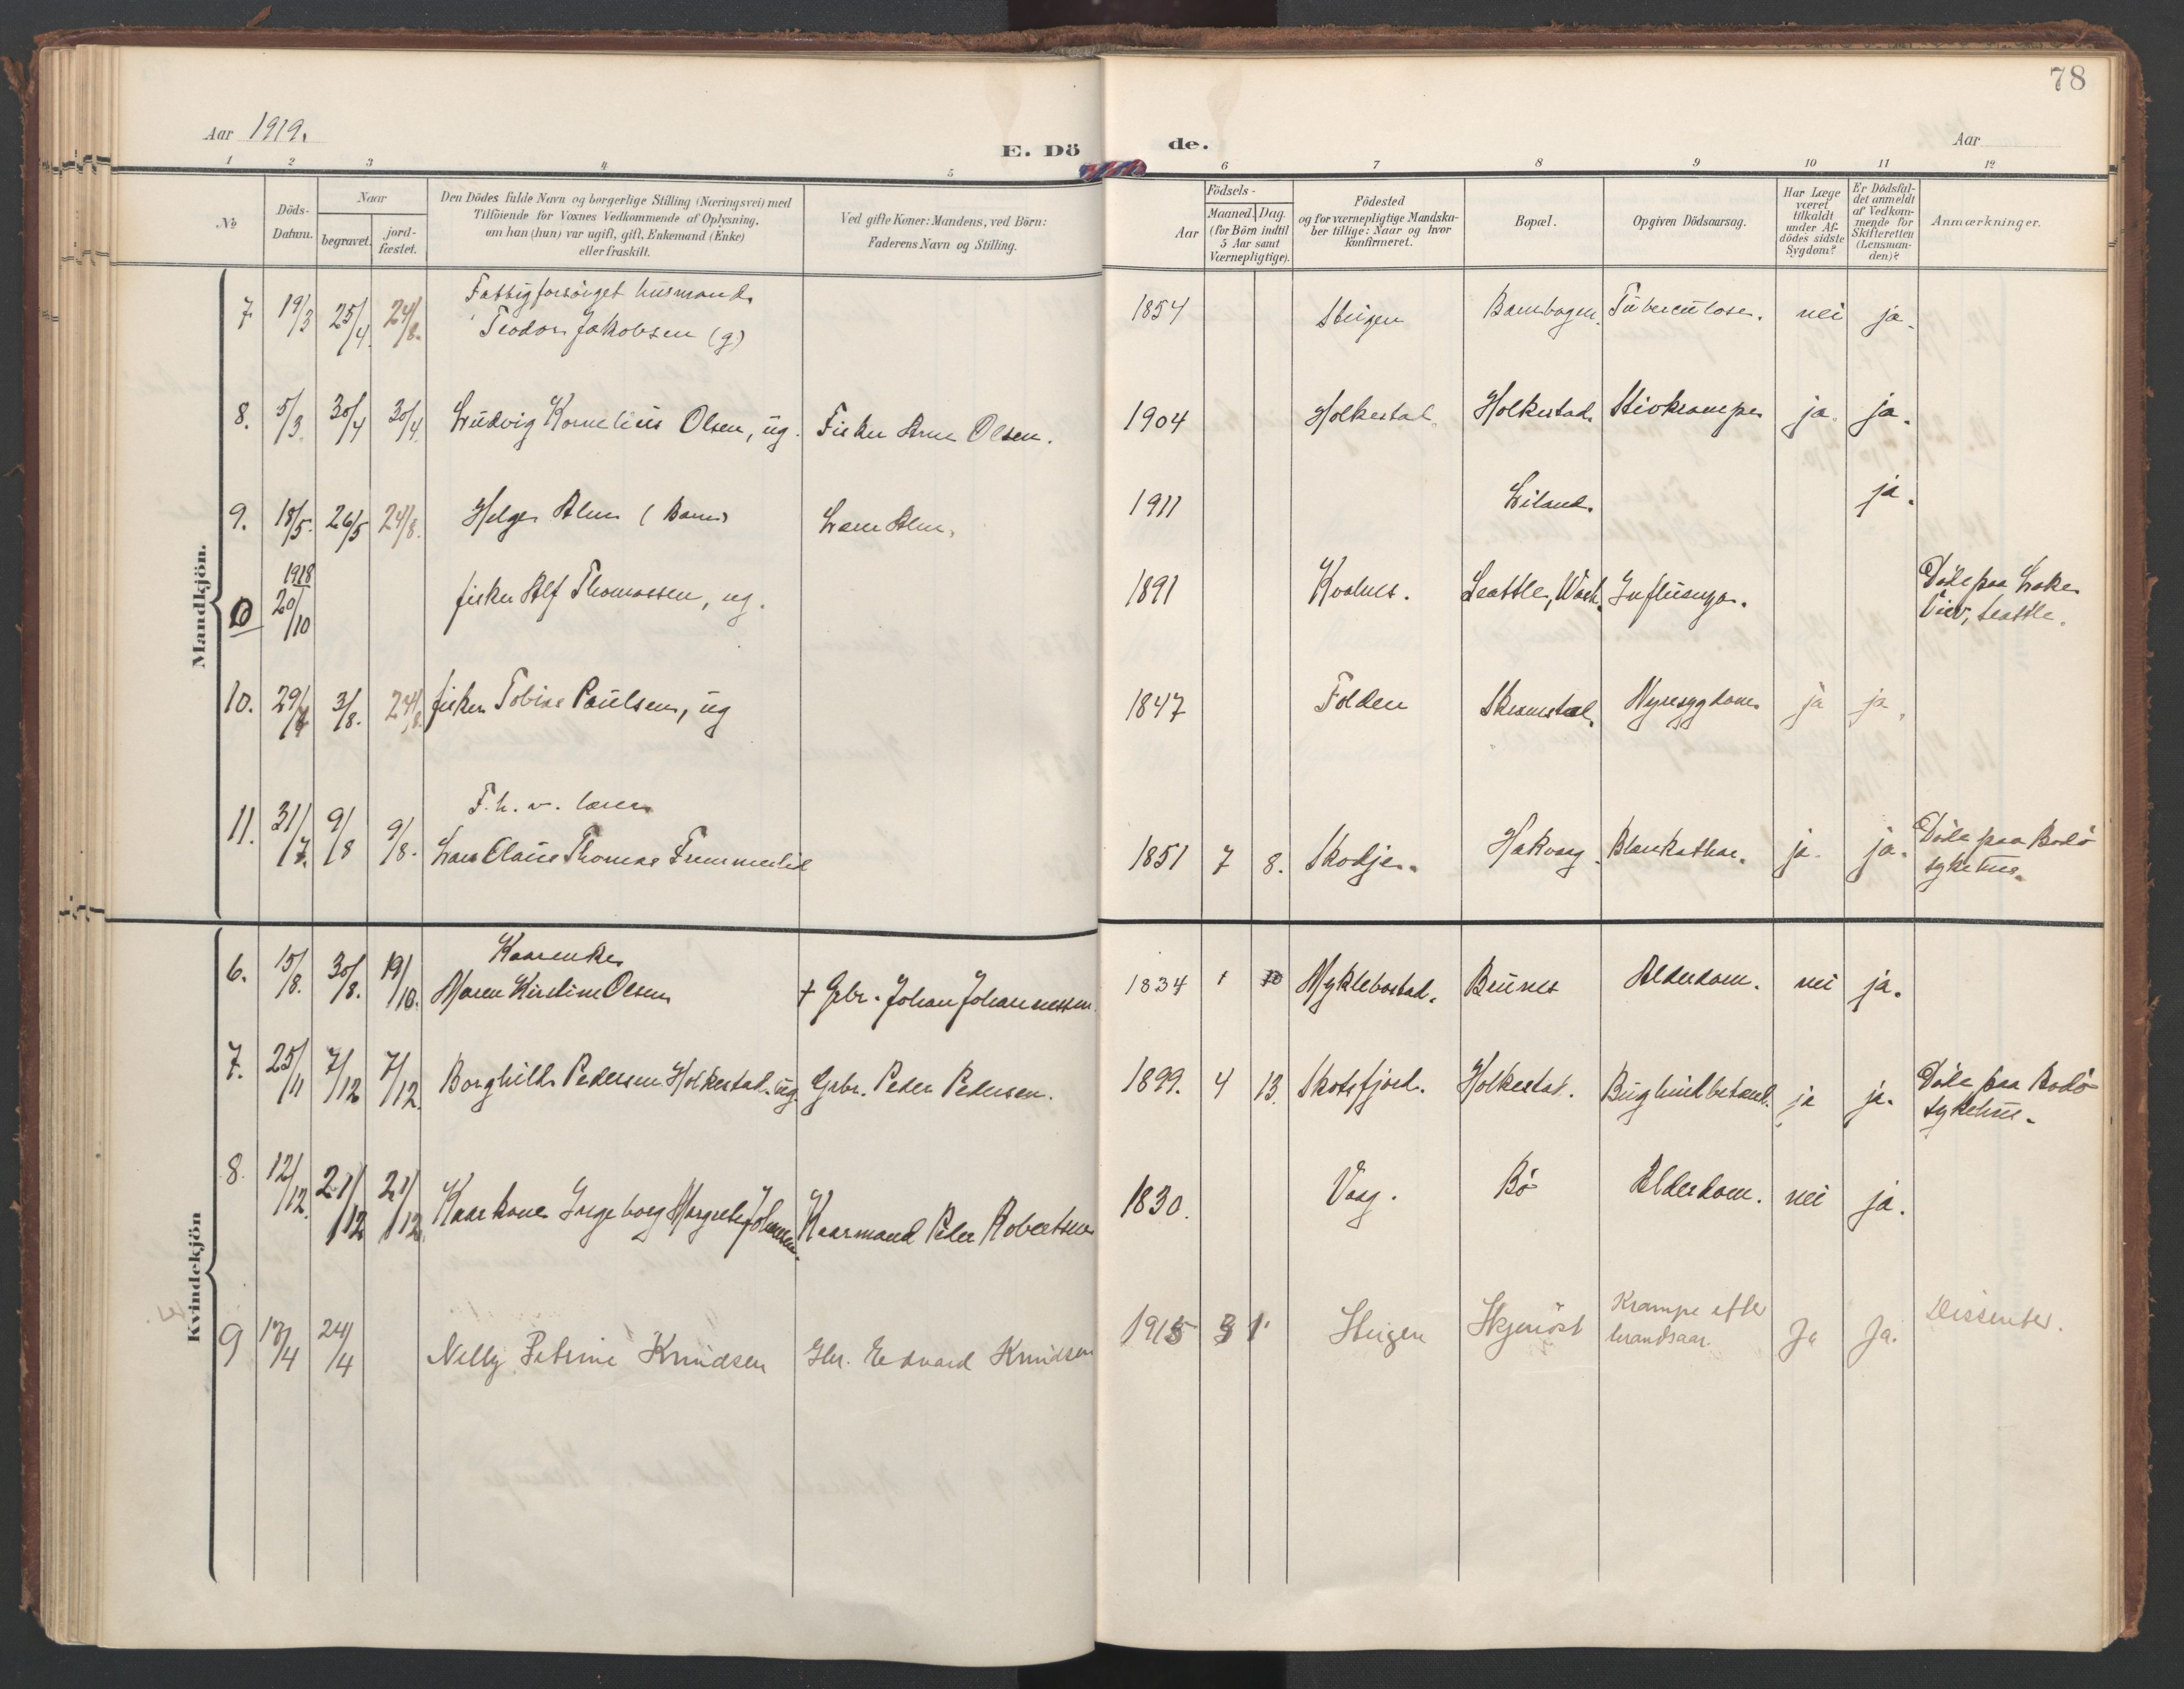 78
Aar 1919.
E. Dö de.
Aar
1 2 3 4 5 6 7 8 9 10 11 12
No
Döds-
Datum.
Naar
begravet.
jord-
fæstet.
Den Dödes fulde Navn og borgerlige Stilling (Næringsvei) med
Tilföiende for Voxnes Vedkommende af Oplysning,
om han (hun) var ugift, gift, Enkemand (Enke)
eller fraskilt.
Ved gifte Koner: Mandens, ved Börn:
Faderens Navn og Stilling.
Födsels-
Aar
Maaned. Dag.
(for Börn indtil
5 Aar samt
Værnepligtige).
Födested
og for værnepligtige Mandska-
ber tillige: Naar og hvor
konfirmeret.
Bopæl.
Opgiven Dödsaarsag.
Har Læge
været
tilkaldt
under Af-
dödes sidste
Sygdom?
Er Dödsfal-
det anmeldt
af Vedkom-
mende for
Skifteretten
(Lensman-
den)?
Anmærkninger.
Mandkjön.
Fattigforsörget husmand
7 19/3 25/4. 24/8. Teodor Jakobsen (g.) 1854 Steigen Tuberculose. nei ja.
8. 5/3. 30/4 30/4. Ludvig Kornelius Olsen, ug. Fisker Arne Olsen. 1904 Holkestad. Holkestad. Stivkrampe ja. ja.
9. 18/5. 26/5 24/8. Helge Alm (Barn) Lars Alm. 1911 Leiland. ja.
1918
10 20/10 fisker Alf Thomassen, ug. 1891 Kvalnes. Seattle, Wash. Influenza. Döde paa Lake
View, Seattle.
10. 29/7 3/8. 24/8. fisker Tobias Paulsen, ug 1847 Folden Skramstad. Nyresygdom ja ja.
F. h. v. lærer
11. 31/7. 9/8 9/8. Lars Claus Thomas Tummerlid 1851 7 8. Skodje. Hakvaag. Blærekathar. ja. ja. Döde paa Bodö
sykehus.
Kvindekjön
Kaarenke
6. 15/8. 30/8. 19/10. Maren Kirstine Olsen + Gbr. Johan Johannessen. 1834 1 10 Myklebostad. Brünes Alderdom. nei ja.
7. 25/11 7/12 7/12. Borghild Pedersen Holkestad. ug. Gbr. Peder Pedersen. 1899. 4 13. Skotsfjord. Holkestad. Bughindbetænd. ja ja. Döde paa Bodö
sykehus.
8. 12/12. 21/12 21/12. Kaarkone Ingeborg Margrete Johansen. Kaarmand Peder Robertsen 1830. Vaag. Bö Alderdom. nei ja.
9 13/4 24/4 Nelly Petrine Knudsen Gbr. Edvard Knudsen 1915 3 1. Steigen Skjenöst Krampe efter
brandsaar. Ja Ja. Dissenter.